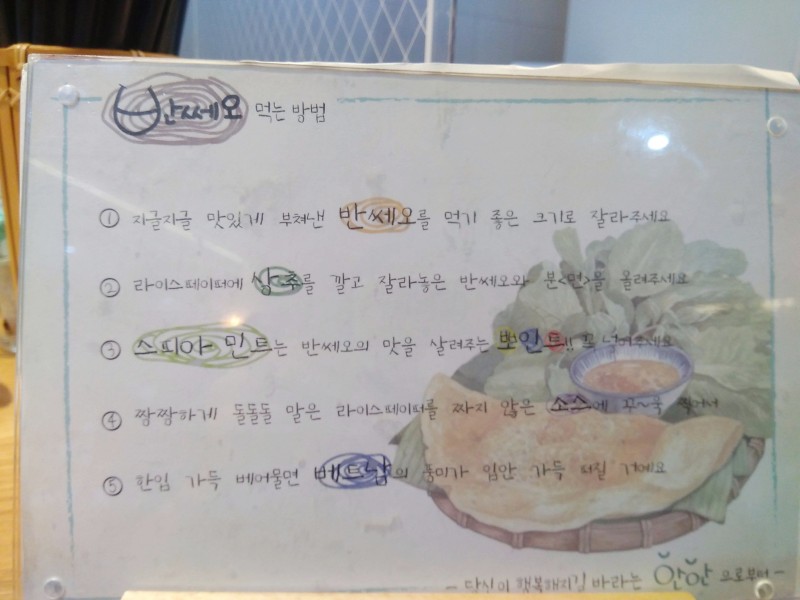 반쎄오 먹는 방법
① 자글자글 맛있게 부쳐낸 반쎄오를 먹기 좋은 크기로 잘라주세요
② 라이스페이퍼에 상추를 깔고 잘라놓은 반쎄오와 분<면>을 올려주세요
③ 스피아 민트는 반쎄오의 맛을 살려주는 뽀인트!! 꼭 넣어주세요
④ 짱짱하게 돌돌돌 말은 라이스페이퍼를 짜지 않은 소스에 꾸~욱 찍어서
⑤ 한입 가득 베어물면 베트남의 풍미가 입안 가득 퍼질 거예요
- 당신이 행복해지길 바라는 안안 으로부터 -